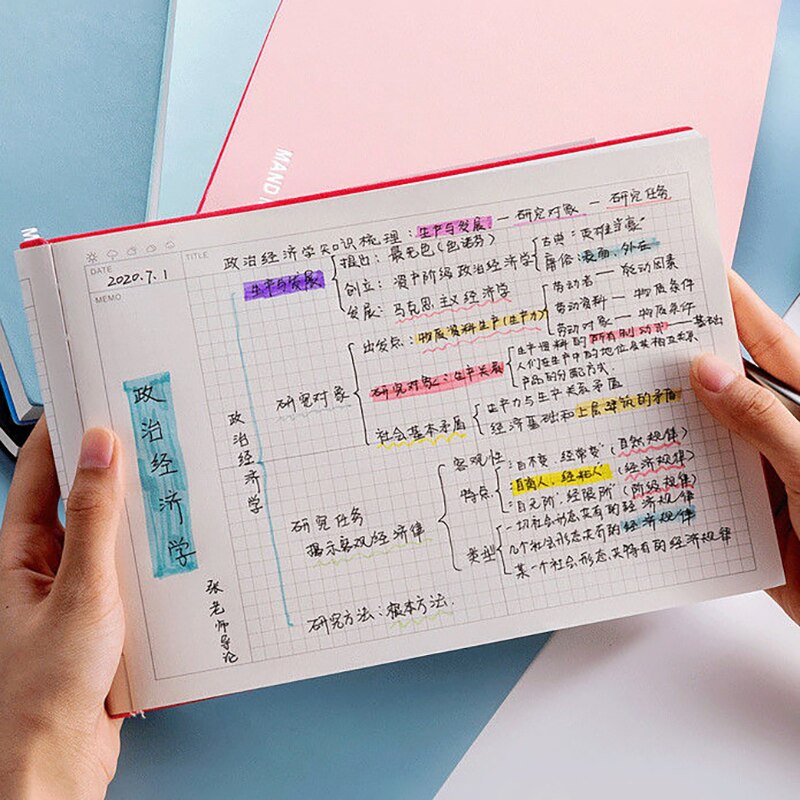 MAND
DATE
2020.7.1
MEMO
TITLE
政治经济学知识梳理：生产与发展 — 研究对象 — 研究任务
政治经济学
张老师导论
政治经济学
生产与发展
提出：最无色(色诺芬)
创立：资产阶级政治经济学
古典："英雄当豪"
庸俗：表面、外在
发展：马克思主义经济学
研究对象
出发点：物质资料生产(生产力)
劳动者 — 能动因素
劳动资料 — 物质条件
劳动对象 — 物质条件
研究对象：生产关系
生产资料的所有制形式 — 基础
人们在生产中的地位及其相互关系
产品的分配方式
社会基本矛盾
生产力与生产关系矛盾
经济基础和上层建筑的矛盾
研究任务
揭示客观经济律
客观性
特点
"自不变，经常变"(自然规律)
"自离人，经相人"(经济规律)
"自无阶，经限阶"(阶级规律)
类型
一切社会形态共有的经济规律
几个社会形态共有的经济规律
某一个社会形态共特有的经济规律
研究方法：根本方法.